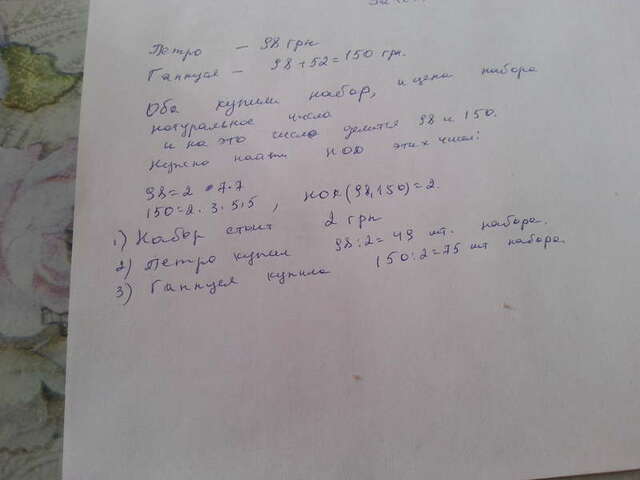 Петро – 98 грн
Ганнуся – 98+52=150 грн.
Оба купили набор, и цена набора
натуральное число
и на это число делится 98 и 150.
Нужно найти НОД этих чисел:
98=2·7·7
150=2·3·5·5, НОД(98,150)=2.
1) Набор стоит 2 грн
2) Петро купил 98:2=49 шт. набора.
3) Ганнуся купила 150:2=75 шт набора.